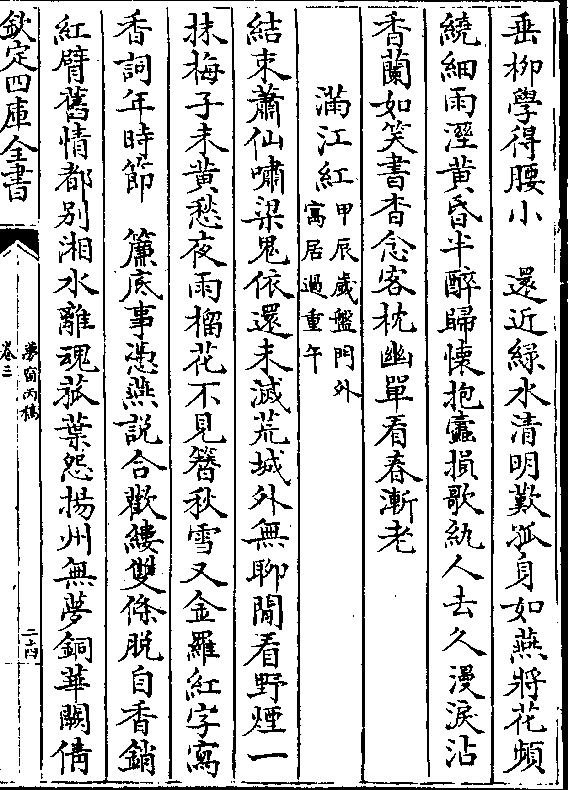 垂柳學得腰小　還近緑水清明歎孤身如燕將花頻
繞細雨溼黄昏半醉歸懷抱蠧損歌紈人去久漫淚沾
香蘭如笑書杳念客枕幽單看春漸老
滿江紅
甲辰歲盤門外
寓居過重午
結束蕭仙嘯梁鬼依還未滅荒城外無聊閒看野煙一
抹梅子未黄愁夜雨榴花不見簪秋雪又金羅紅字寫
香詞年時節　簾底事憑燕説合歡縷雙條脱自香銷
紅臂舊情都别湘水離魂菰葉怨揚州無夢銅華闕倩
欽定四庫全書
夢窗丙稿
卷三
二十四